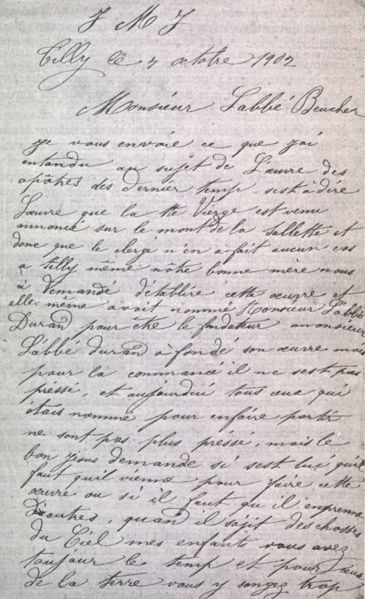 J M J
Tilly le 4 octobre 1902
Monsieur Labbé Beucher
je vous envoie ce que j'ai
entandu au sujet de L'œuvre des
apôtres des dernier temp. sest à dire
Lœuvre que la tte Vierge est venu
annoncé sur le mont de la Sallette et
donc que le clergé n'en à fait aucun cas
a tilly même nôtre bonne mère nous
à demandé d'établire cette œuvre et
elle même a vait nommé Monsieur Labbé
Durand pour etre le fondateur monsieur
L'abbé durand à fondé son œuvre mais
pour la commancé il ne sest pas
pressé, et aujourdui tous ceux qui
étais nommé pour enfaire partir
ne sont pas plus pressé, mais le
bon Jésus demande si sest lui qu'il
faut qu'il vienne pour faire cette
œuvre ou si il faut qu il enprenne
d'autres, quand il sajit des choses
du Ciel mes enfants vous avez
toujour le temp et pour
de la terre vous y songez trop